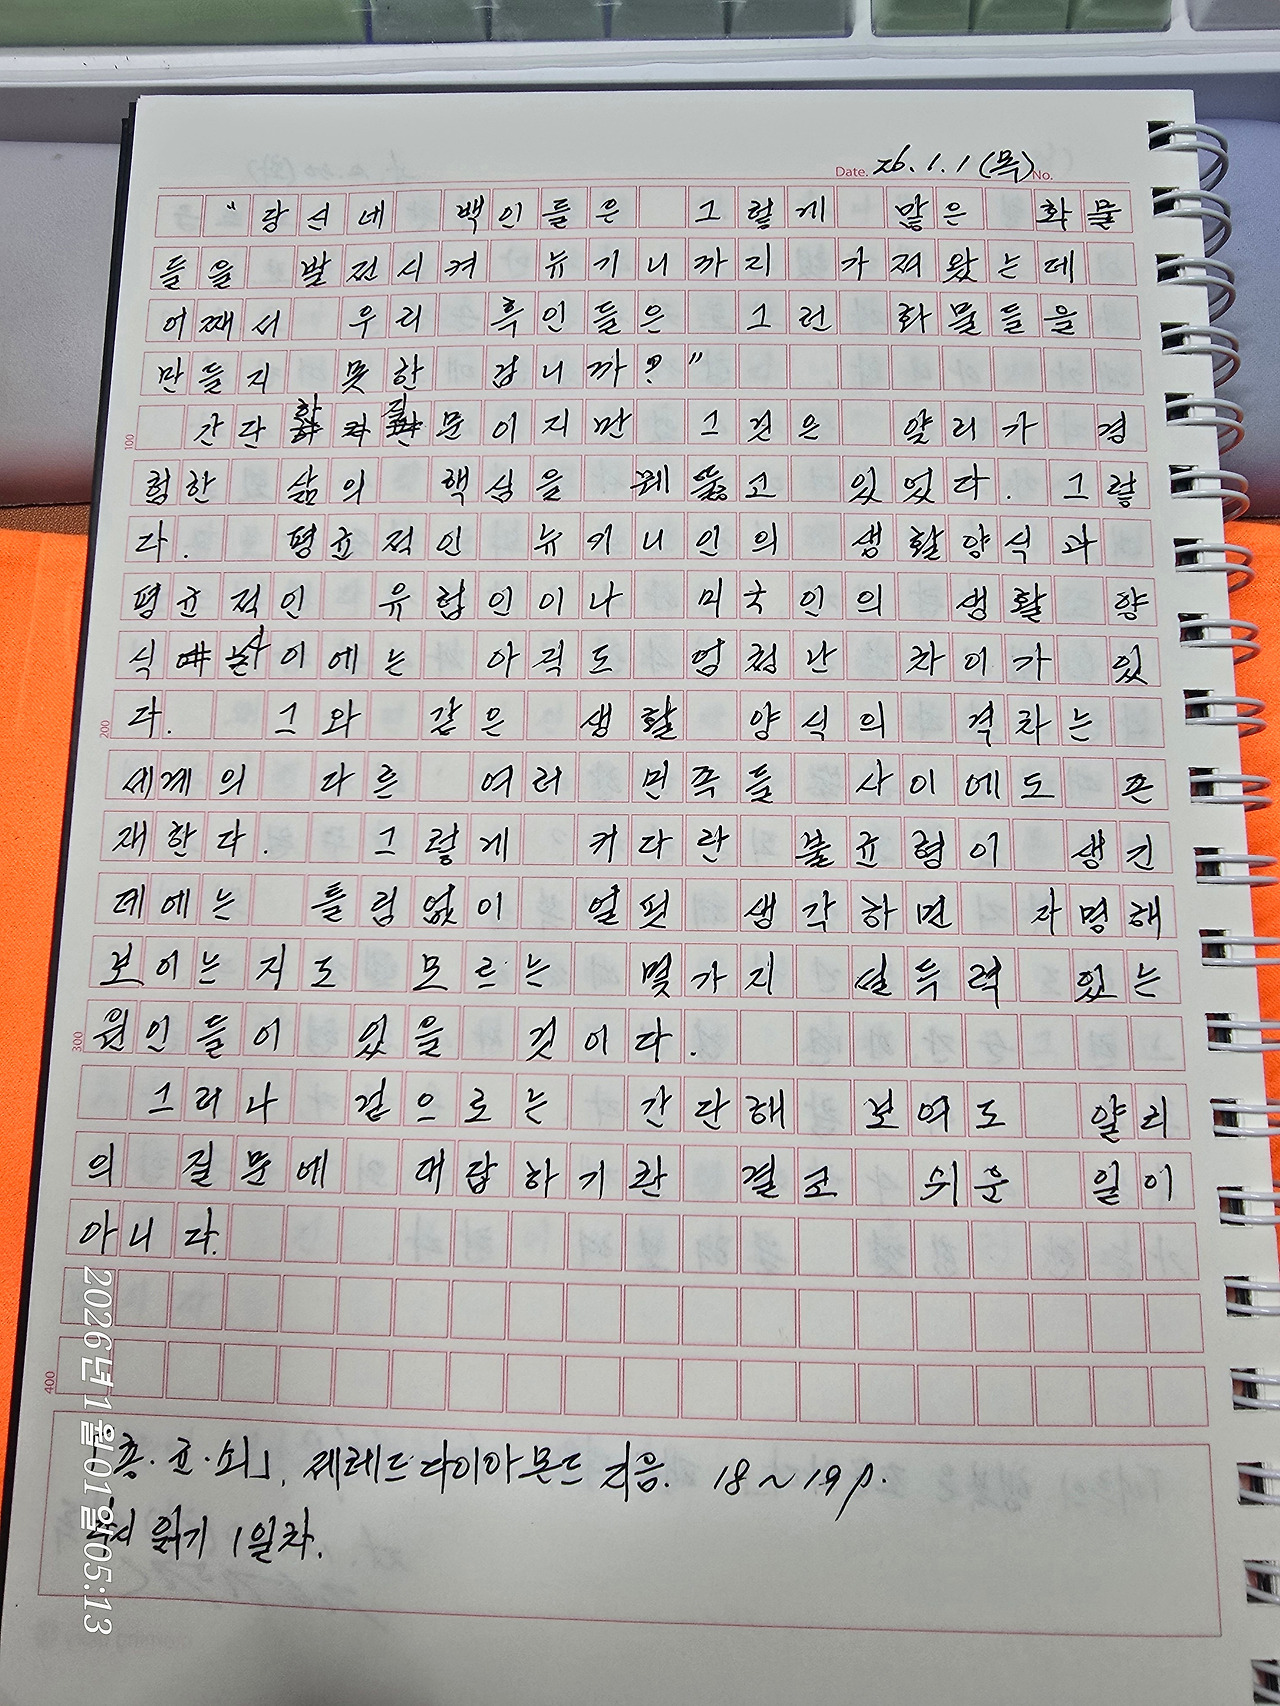 Date. 26. 1. 1 (목) No.
"당신네 백인들은 그렇게 많은 화물
들을 발전시켜 뉴기니까지 가져왔는데
어째서 우리 흑인들은 그런 화물들을
만들지 못한 겁니까?"
간단한 질문이지만 그것은 얄리가 경
100
험한 삶의 핵심을 꿰뚫고 있었다. 그렇
다. 평균적인 뉴기니인의 생활양식과
평균적인 유럽인이나 미국인의 생활 양
식 사이에는 아직도 엄청난 차이가 있
다. 그와 같은 생활 양식의 격차는
200
세계의 다른 여러 민족들 사이에도 존
재한다. 그렇게 커다란 불균형이 생긴
데에는 틀림없이 얼핏 생각하면 자명해
보이는지도 모르는 몇가지 설득력 있는
원인들이 있을 것이다.
300
그러나 겉으로는 간단해 보여도 얄리
의 질문에 대답하기란 결코 쉬운 일이
아니다.
400
「총·균·쇠」, 제레드 다이아몬드 지음. 18~19p.
읽기 1일차.
2026년 1월 01일 05:13